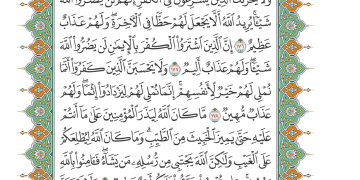 وَلَا يَحْزُنكَ الَّذِينَ يُسَارِعُونَ فِي الْكُفْرِ إِنَّهُمْ لَن يَضُرُّوا اللَّهَ
شَيْئًا يُرِيدُ اللَّهُ أَلَّا يَجْعَلَ لَهُمْ حَظًّا فِي الْآخِرَةِ وَلَهُمْ عَذَابٌ
عَظِيمٌ ١٧٦ إِنَّ الَّذِينَ اشْتَرَوُا الْكُفْرَ بِالْإِيمَانِ لَن يَضُرُّوا اللَّهَ
شَيْئًا وَلَهُمْ عَذَابٌ أَلِيمٌ ١٧٧ وَلَا يَحْسَبَنَّ الَّذِينَ كَفَرُوا أَنَّمَا
نُمْلِي لَهُمْ خَيْرٌ لِّأَنفُسِهِمْ إِنَّمَا نُمْلِي لَهُمْ لِيَزْدَادُوا إِثْمًا وَلَهُمْ
عَذَابٌ مُّهِينٌ ١٧٨ مَّا كَانَ اللَّهُ لِيَذَرَ الْمُؤْمِنِينَ عَلَىٰ مَا أَنتُمْ
عَلَيْهِ حَتَّىٰ يَمِيزَ الْخَبِيثَ مِنَ الطَّيِّبِ وَمَا كَانَ اللَّهُ لِيُطْلِعَكُمْ
عَلَى الْغَيْبِ وَلَٰكِنَّ اللَّهَ يَجْتَبِي مِن رُّسُلِهِ مَن يَشَاءُ فَآمِنُوا بِاللَّهِ